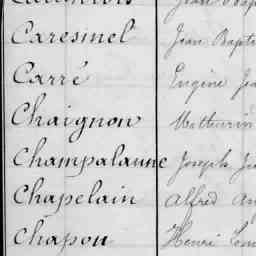 Caresinel Jean Bapti
Carré Eugène Je
Chaignon Mathurin
Champalaune Joseph Je
Chapelain Alfred Au
Chapon Henri